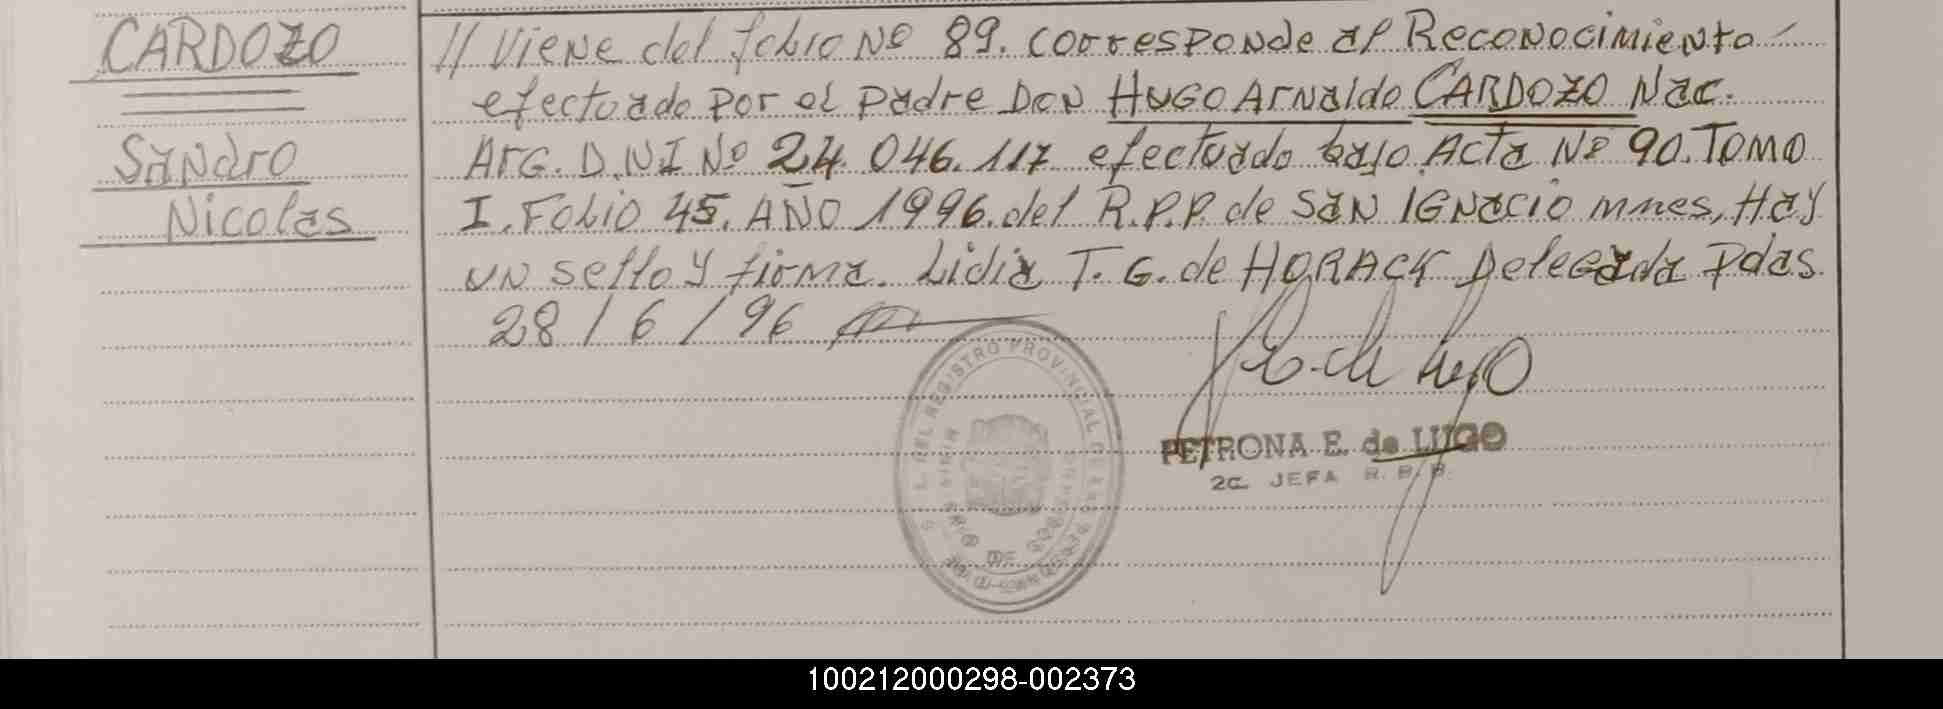 CARDOZO
Sandro
Nicolas
// Viene del folio Nº 89. corresponde al Reconocimiento
efectuado por el padre Don Hugo Arnaldo CARDOZO Nac.
Arg. D.N.I Nº 24.046.117 efectuado bajo Acta Nº 90. Tomo
I. Folio 45. AÑO 1996. del R.P.P. de San Ignacio mnes, Hay
un sello y firma. Lidia T. G. de HORACK Delegada Pdas.
28/6/96
REGISTRO PROVINCIAL DE
PETRONA E. de LUGO
2a JEFA R. B. B.
100212000298-002373